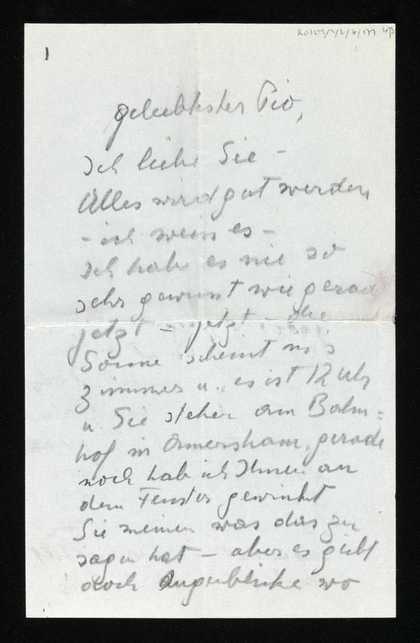 1
geliebtester Pio,
Ich liebe Sie –
Alles wird gut werden
– ich weiss es –
Ich habe es nie so
sehr gewusst wie gerade
jetzt – jetzt – die
Sonne scheint ins
Zimmer u. es ist 12 Uhr
u. Sie stehen am Bahn=
hof in Amersham, gerade
noch hab ich Ihnen an
dem Fenster gewinkt
Sie meinen was das zu
sagen hat – aber es giebt
doch Augenblicke wo